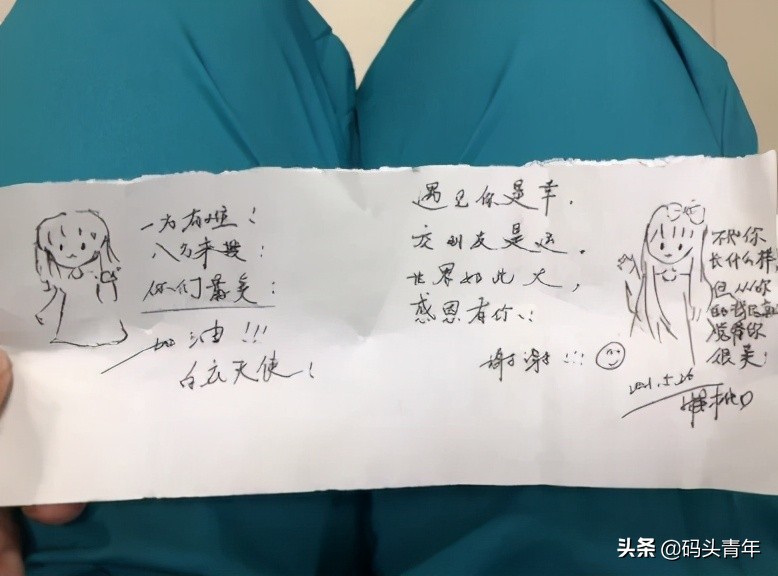 一方有难！
八方来援！
你们最美！
加油!!!
白衣天使！
遇见你是幸，
交到友是运。
世界如此大，
感恩有你！
谢谢!!!
不知你
长什么样，
但从你
的
觉得你
很美！
2021.5.26
头条 @码头青年